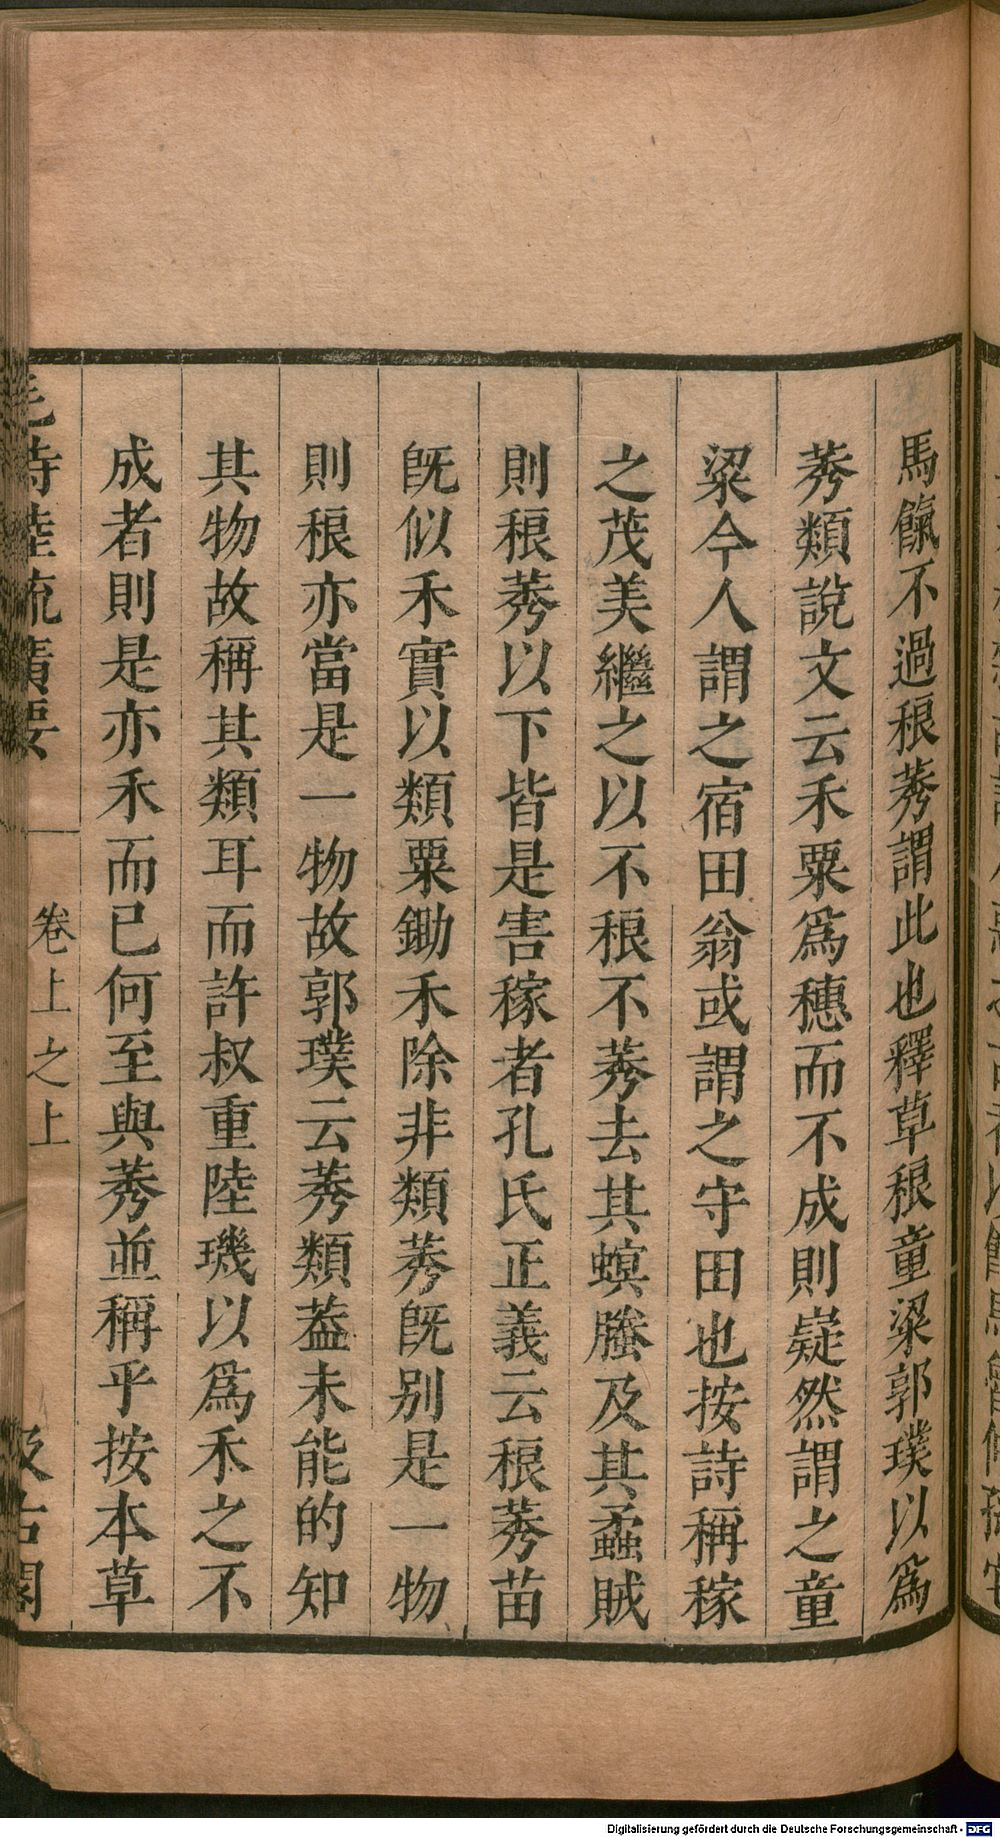 馬餼不過稂莠謂此也釋草稂童粱郭璞以爲
莠類說文云禾粟爲穗而不成則嶷然謂之童
粱今人謂之宿田翁或謂之守田也按詩稱稼
之茂美繼之以不稂不莠去其螟螣及其蟊賊
則稂莠以下皆是害稼者孔氏正義云稂莠苗
旣似禾實以類粟鋤禾除非類莠旣别是一物
則稂亦當是一物故郭璞云莠類葢未能的知
其物故稱其類耳而許叔重陸璣以爲禾之不
成者則是亦禾而已何至與莠並稱乎按本草
毛詩陸疏廣要
卷上之上
汲古閣
Digitalisierung gefördert durch die Deutsche Forschungsgemeinschaft - DFG